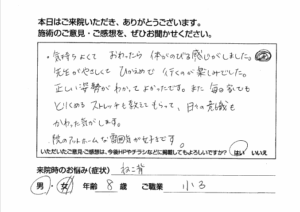 本日はご来院いただき、ありがとうございます。
施術のご意見・ご感想を、ぜひお聞かせください。
・気持ちよくて おわったら 体がのびる感じがしました。
先生がやさしくて ひかえめで 行くのが楽しみでした。
正しい姿勢がわかってよかったです。また毎日家でも
とりくめるストレッチも教えてもらって、日々の意識も
かわった気がします。
院のアットホームな雰囲気が好きです。
いただいたご意見・ご感想は、今後HPやチラシなどに掲載してもよろしいですか? はい いいえ
来院時のお悩み(症状) ねこ背
男・女 年齢 8 歳 ご職業 小3